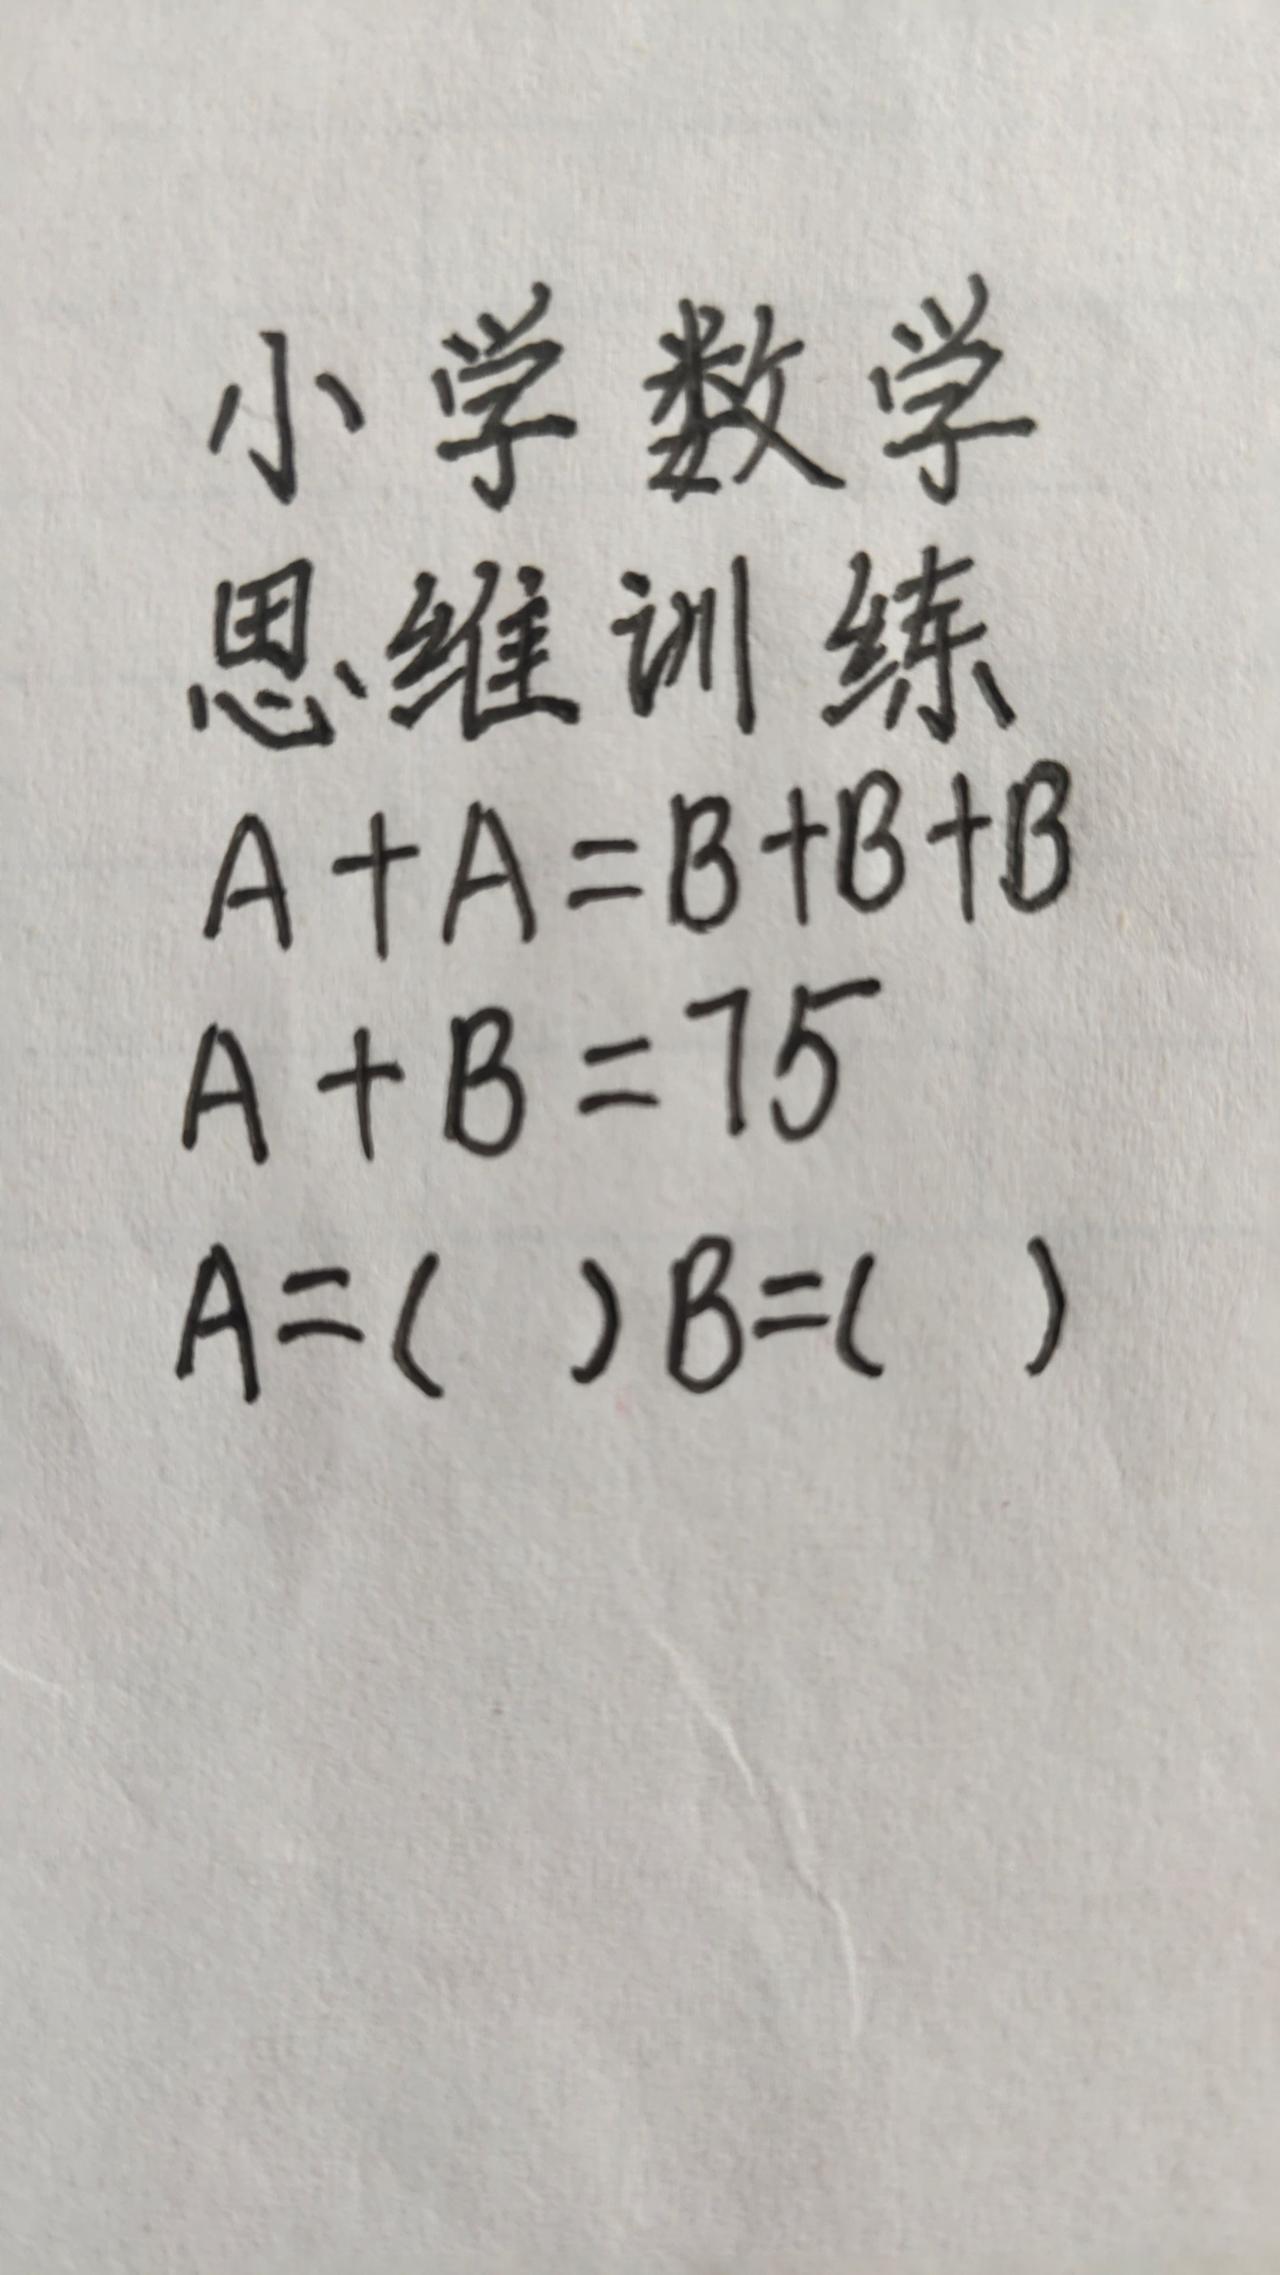 小学数学
思维训练
A+A=B+B+B
A+B=75
A=( )B=( )